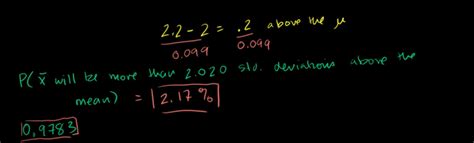 2.2 - 2 = .2 above the μ
0.099 0.099
P( x̄ will be more than 2.020 std. deviations above the
mean) = 2.17%
0.9783